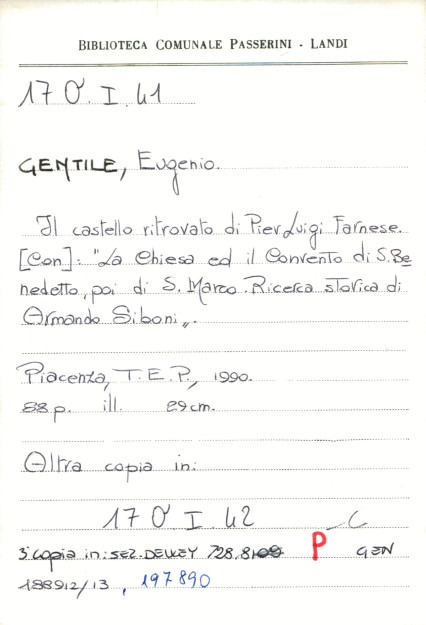 BIBLIOTECA COMUNALE PASSERINI - LANDI
170. I. 41
GENTILE, Eugenio.
Il castello ritrovato di Pier Luigi Farnese.
[Con]: "La Chiesa ed il Convento di S. Be
nedetto, poi di S. Marco. Ricerca storica di
Armando Siboni„.
Piacenza, T.E.P., 1990.
88 p. ill. 29 cm.
Altra copia in:
170 I 42
3ª copia in: SEZ. DEWEY 728.8 P GEN
188912/13, 197890